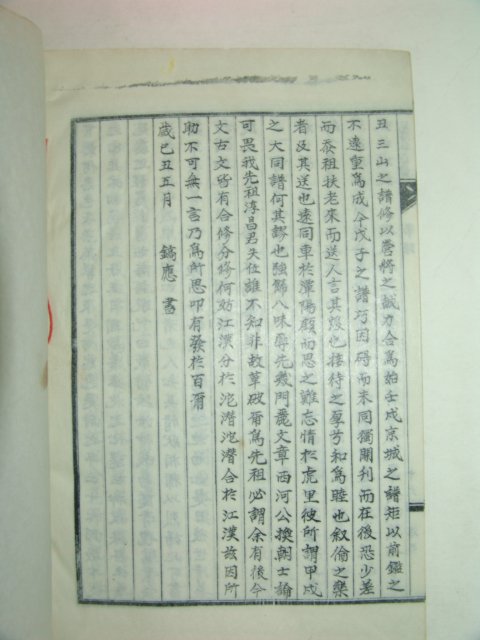 丑三山之譜修以啓將之誠力合爲始壬戌京城之譜矩以前鑑之
不遠重爲成今戊子之譜巧因碍而未同獨關利而在後恐少差
而泰祖扶老來而送人言其毀也接待之厚芳和爲睦也叙倫之樂
者及其送也遠同車於潭陽顧而思之難忘情於虎里彼所謂甲戌
之大同譜何其謬也強餙八味辱先幾門麗文章西河公換朝士論
可畏我先祖淳昌君失位誰不知非故草破胥爲先祖必謂余有後今
文古文皆有合脩分脩何妨江漢分於沱潛沱潛合於江漢玆因所
助不可無一言乃爲所思叩有發於百爾
歲己丑五月 鎬應 書